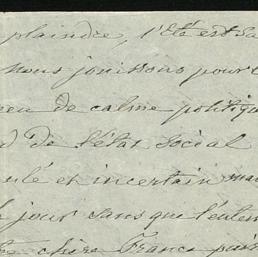 plaindre, l'Eté est
nous jouissons pour
peu de calme politiq
de l'état social
ulé et incertain
jour sans que
chère France puis